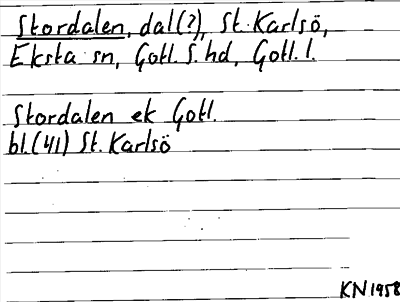 Stordalen, dal(?), St. Karlsö,
Eksta sn, Gotl. S. hd, Gotl. l.
Stordalen ek Gotl.
bl. (41) St. Karlsö
KN 1958